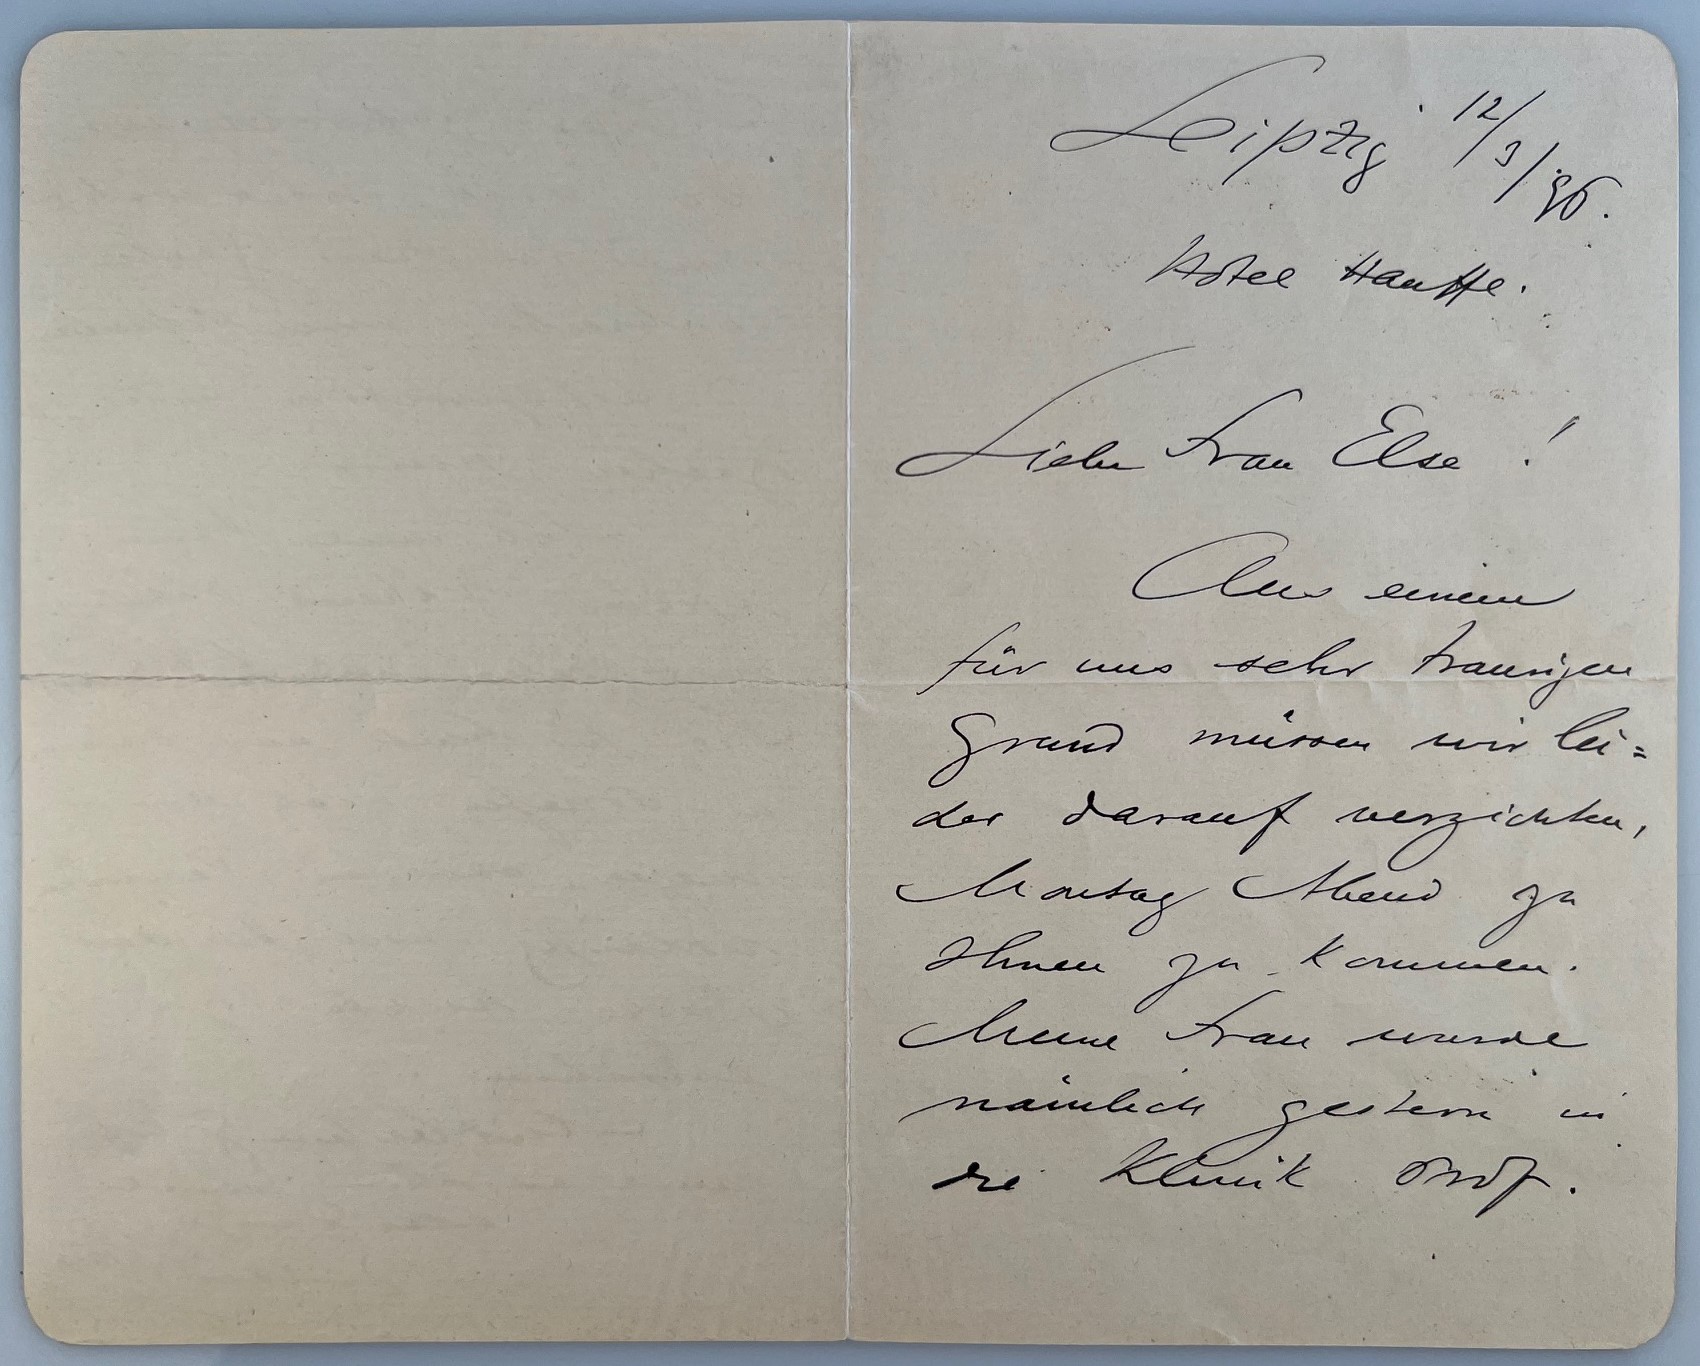 Leipzig 12/3/96.
Hotel Hauffe.
Liebe Frau Else!
Aus einem
für uns sehr traurigen
Grund müssen wir lei=
der darauf verzichten,
Montag Abend zu
Ihnen zu kommen.
Meine Frau wurde
nämlich gestern in
die Klinik Prof.